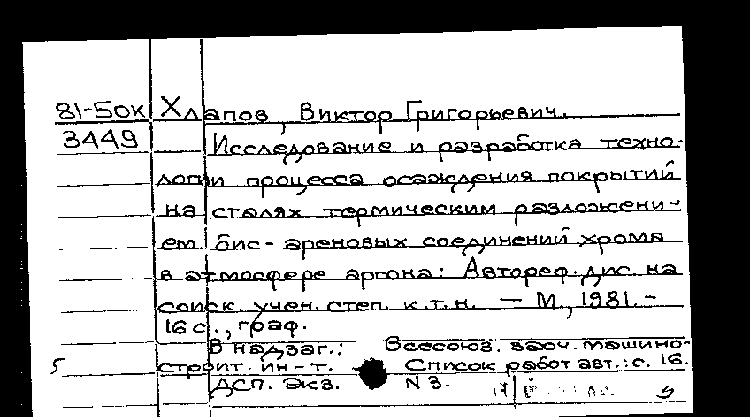 81-50к Хлапов, Виктор Григорьевич.
3449 Исследование и разработка техно-
логии процесса осаждения покрытий
на сталях термическим разложени-
ем бис-ареновых соединений хрома
в атмосфере аргона: Автореф. дис. на
соиск. учен. степ. к.т.н. — М., 1981. -
16 с., граф.
В надзаг.: Всесоюз. заоч. машино-
5 строит. ин-т. Список работ авт.: с. 16.
ДСП. Экз. N 3.